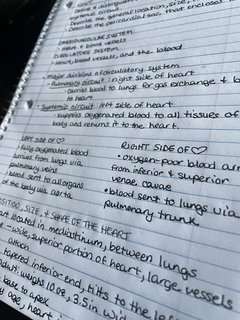 systemic circuit
describe the general location, size,
describe the pericardial sac that encloses
CARDIOVASCULAR SYSTEM
heart & blood vessels
CIRCULATORY SYSTEM
heart, blood vessels, and the blood
Major divisions of circulatory system
- Pulmonary circuit: right side of heart
• carries blood to lungs for gas exchange & b
to heart
- Systemic circuit: left side of heart
• supplies oxygenated blood to all tissues of
body and returns it to the heart.
LEFT SIDE OF ♡
• fully oxygenated blood
arrives from lungs via
pulmonary veins
• blood sent to all organs
of the body via aorta
RIGHT SIDE OF ♡
• oxygen-poor blood arr
from inferior & superior
venae cavae
• blood sent to lungs via
pulmonary trunk
POSITION, SIZE, & SHAPE OF THE HEART
heart located in mediastinum, between lungs
- wide, superior portion of heart, large vessels
tapered inferior end, tilts to the left
adult: weight 10oz, 3.5in wide
base to apex
age, heart i